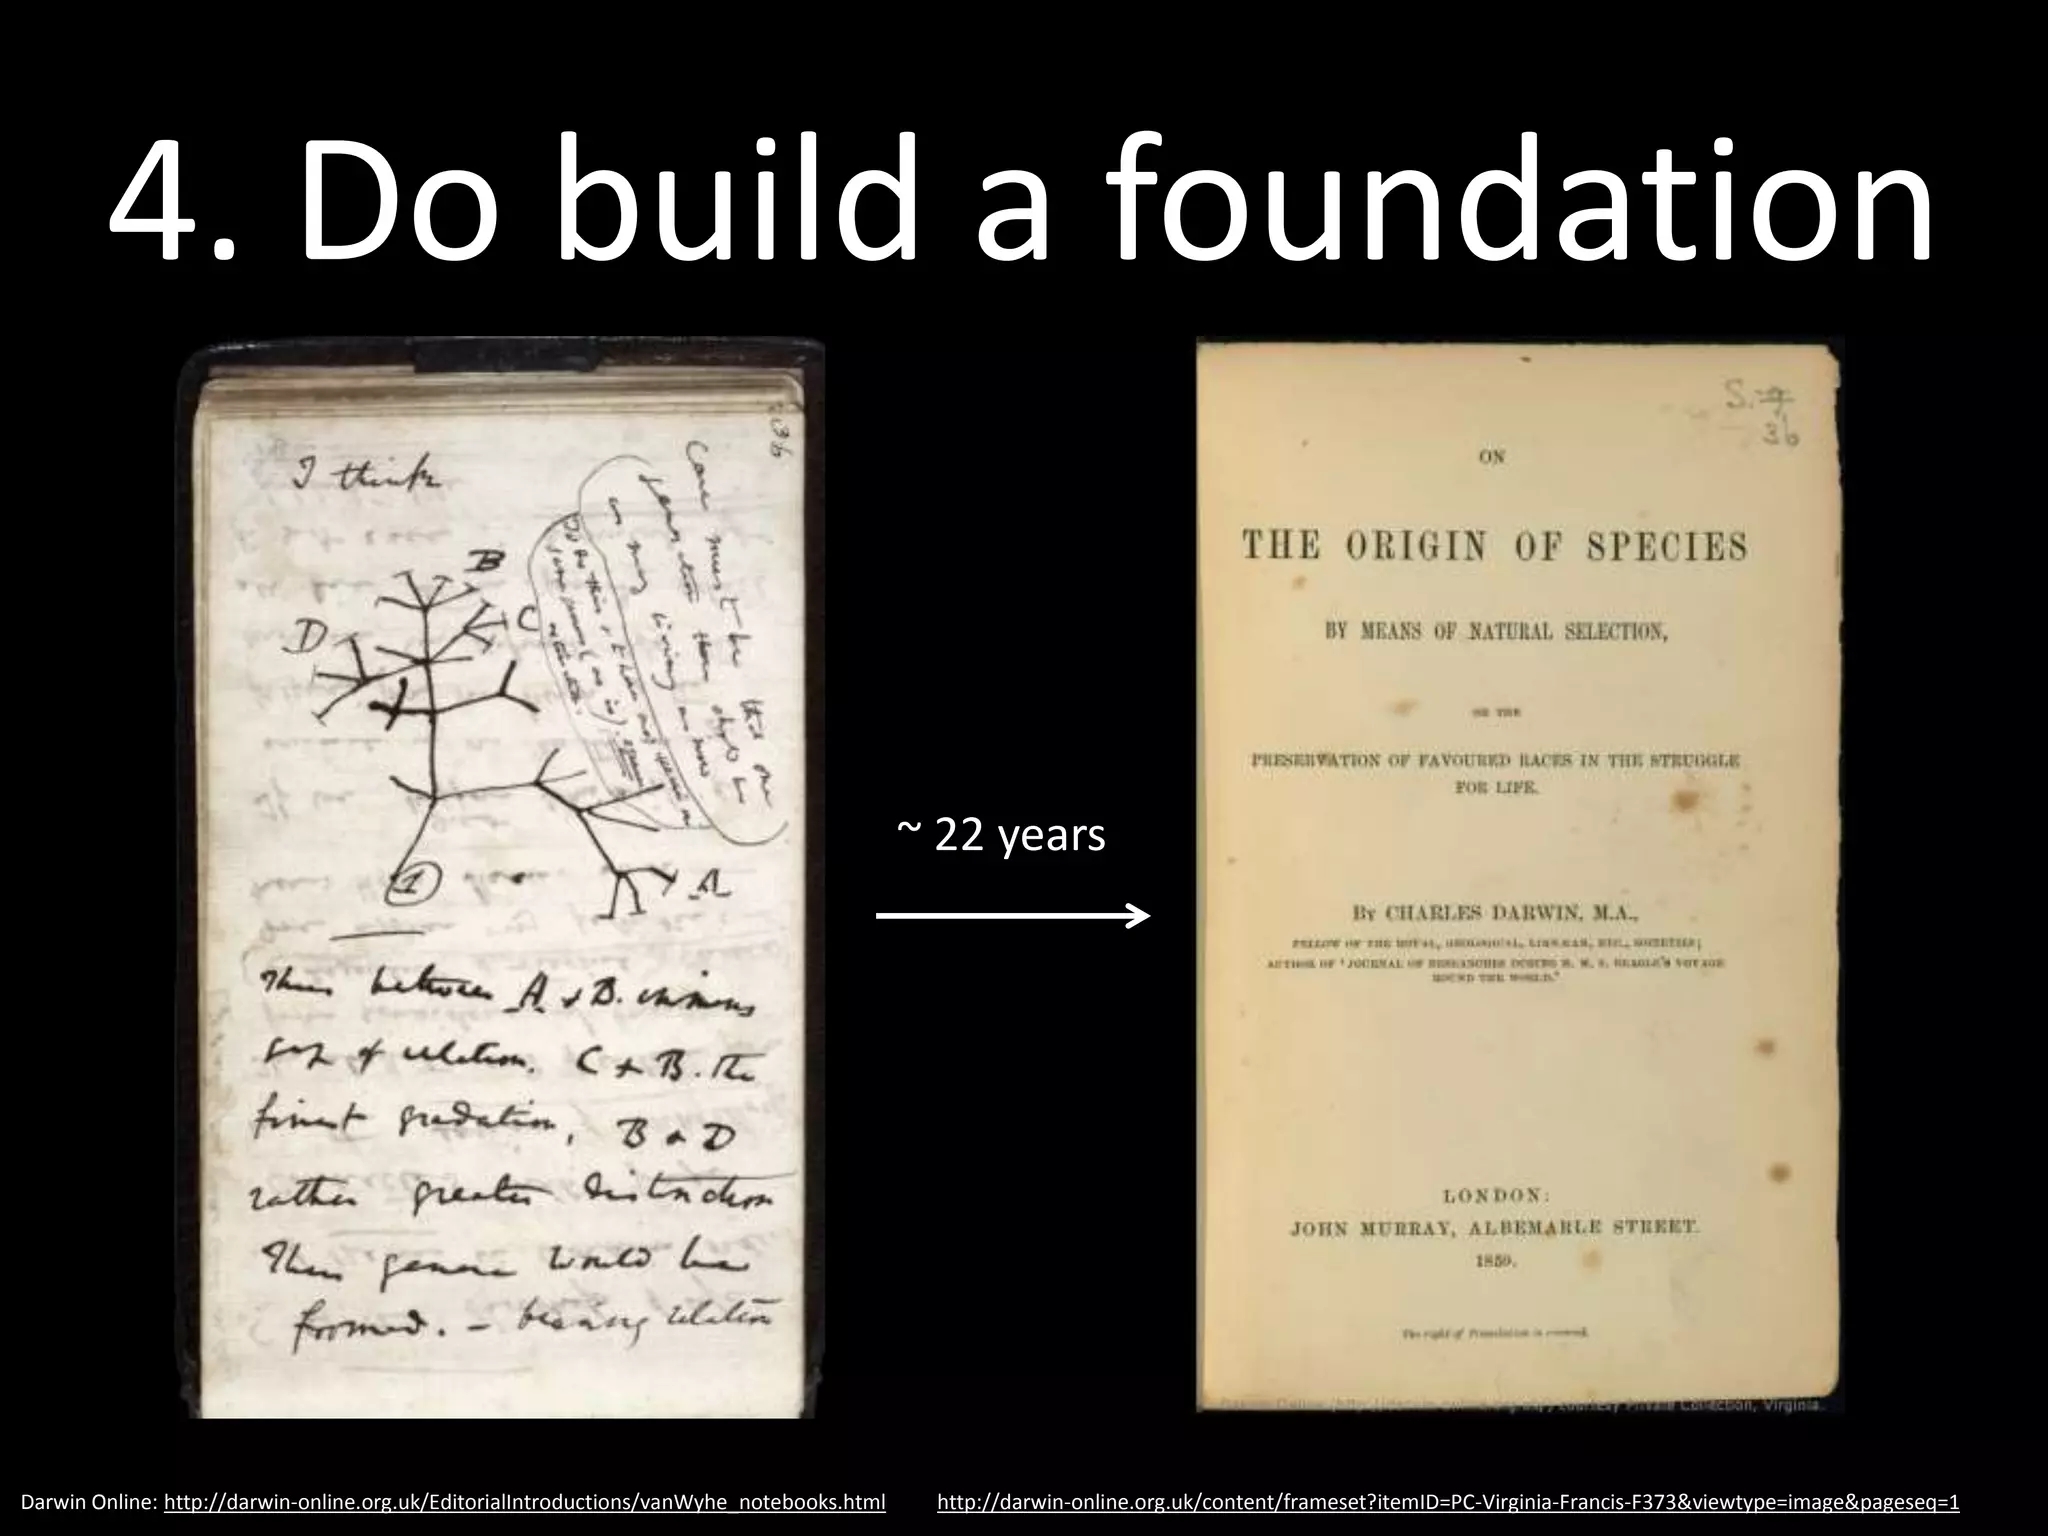 4. Do build a foundation
I think
B
C
D
A
1
Thus between A & B. immens
gap of relation. C & B. The
finest gradation, B & D
rather greater distinction
Thus genera would be
formed. — bearing relation
Case must be that one
generation then should be
as many living as now
To do this & to have many species in
same genus (as is).
~ 22 years
ON
THE ORIGIN OF SPECIES
BY MEANS OF NATURAL SELECTION,
OR THE
PRESERVATION OF FAVOURED RACES IN THE STRUGGLE
FOR LIFE.
BY CHARLES DARWIN, M.A.,
FELLOW OF THE ROYAL, GEOLOGICAL, LINNÆAN, ETC., SOCIETIES;
AUTHOR OF 'JOURNAL OF RESEARCHES DURING H. M. S. BEAGLE'S VOYAGE
ROUND THE WORLD.'
LONDON:
JOHN MURRAY, ALBEMARLE STREET.
1859.
The right of Translation is reserved.
Courtesy Private Collection, Virginia.
Darwin Online: http://darwin-online.org.uk/EditorialIntroductions/vanWyhe_notebooks.html
http://darwin-online.org.uk/content/frameset?itemID=PC-Virginia-Francis-F373&viewtype=image&pageseq=1